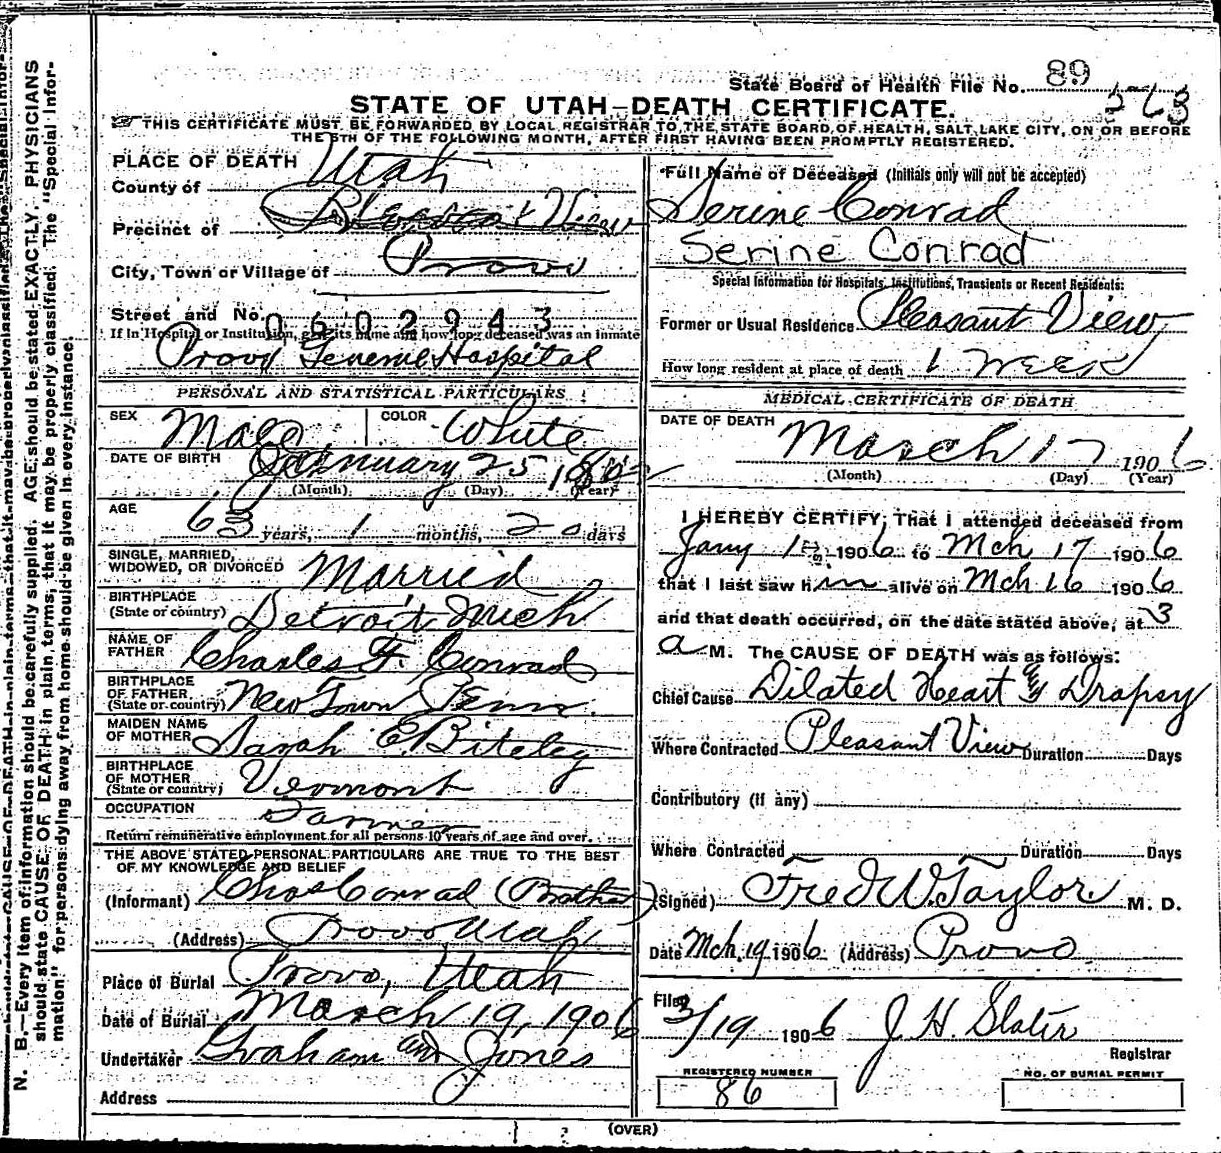 State Board of Health File No. 89
STATE OF UTAH—DEATH CERTIFICATE.
THIS CERTIFICATE MUST BE FORWARDED BY LOCAL REGISTRAR TO THE STATE BOARD OF HEALTH, SALT LAKE CITY, ON OR BEFORE
THE 5TH OF THE FOLLOWING MONTH, AFTER FIRST HAVING BEEN PROMPTLY REGISTERED.
PLACE OF DEATH
County of Utah
Precinct of Pleasant View
City, Town or Village of Provo
Street and No. 0602943
If in Hospital or Institution, give its name and how long deceased was an inmate
Provo General Hospital
PERSONAL AND STATISTICAL PARTICULARS
SEX Male COLOR White
DATE OF BIRTH January 25
(Month) (Day) (Year)
AGE 63 years, 1 months, 20 days
SINGLE, MARRIED,
WIDOWED, OR DIVORCED Married
BIRTHPLACE
(State or country) Detroit Mich
NAME OF
FATHER Charles F. Conrad
BIRTHPLACE
OF FATHER
(State or country) New Town Penn.
MAIDEN NAME
OF MOTHER Sarah E Biteley
BIRTHPLACE
OF MOTHER
(State or country) Vermont
OCCUPATION Farmer
Return remunerative employment for all persons 10 years of age and over.
THE ABOVE STATED PERSONAL PARTICULARS ARE TRUE TO THE BEST
OF MY KNOWLEDGE AND BELIEF
(Informant) Chas Conrad (Brother)
(Address) Provo Utah
Place of Burial Provo, Utah
Date of Burial March 19, 1906
Undertaker Graham and Jones
Address
Full Name of Deceased (Initials only will not be accepted)
Serine Conrad
Serine Conrad
Special Information for Hospitals, Institutions, Transients or Recent Residents:
Former or Usual Residence Pleasant View
How long resident at place of death 1 WEEK
MEDICAL CERTIFICATE OF DEATH
DATE OF DEATH March 17 1906
(Month) (Day) (Year)
I HEREBY CERTIFY, That I attended deceased from
Jany 1st 1906 to Mch 17 1906
that I last saw him alive on Mch 16 1906
and that death occurred, on the date stated above, at 3
a M. The CAUSE OF DEATH was as follows:
Chief Cause Dilated Heart & Drapsy
Where Contracted Pleasant View Duration Days
Contributory (if any)
Where Contracted Duration Days
(Signed) Fred W. Taylor M. D.
Date Mch. 19 1906 (Address) Provo
Filed 3/19 1906 J. H. Slater
Registrar
REGISTERED NUMBER
86
NO. OF BURIAL PERMIT
(OVER)
N. B.—Every item of information should be carefully supplied. AGE should be stated EXACTLY. PHYSICIANS
should state CAUSE OF DEATH in plain terms, that it may be properly classified. The "Special Infor-
mation" for persons dying away from home should be given in every instance.